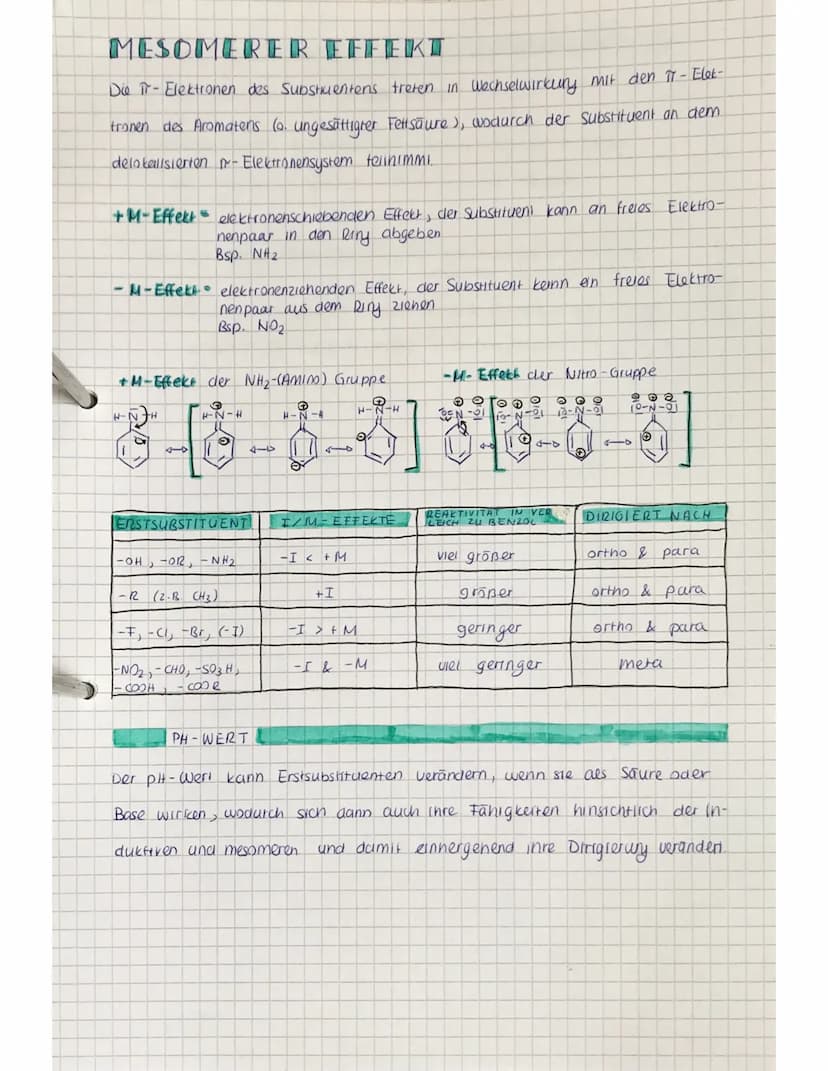 MESOMERER EFFEKT
Die π-Elektronen des Substituentens treten in Wechselwirkung mit den π-Elek-
tronen des Aromatens (o. ungesättigter Fettsäure), wodurch der Substituent an dem
delokalisierten π-Elektronensystem teilnimmt.
+M-Effekt: elektronenschiebenden Effekt, der Substituent kann an freies Elektro-
nenpaar in den Ring abgeben
Bsp. NH₂
-M-Effekt: elektronenziehenden Effekt, der Substituent kann ein freies Elektro-
nenpaar aus dem Ring ziehen
Bsp. NO₂
+M-Effekt der NH₂-(Amino) Gruppe
-M-Effekt der Nitro-Gruppe
ERSTSUBSTITUENT I/M-EFFEKTE REAKTIVITÄT IN VER
LEICH ZU BENZOL DIRIGIERT NACH
-OH, -OR, -NH₂ -I < +M viel größer ortho & para
-R (z.B. CH₃) +I größer ortho & para
-F, -Cl, -Br, (-I) -I > +M geringer ortho & para
-NO₂, -CHO, -SO₃H, -I & -M viel geringer meta
-COOH, -COOR
PH-WERT
Der pH-Wert kann Erstsubstituenten verändern, wenn sie als Säure oder
Base wirken, wodurch sich dann auch ihre Fähigkeiten hinsichtlich der In-
duktiven und mesomeren und damit einhergehend ihre Dirigierung verändert.